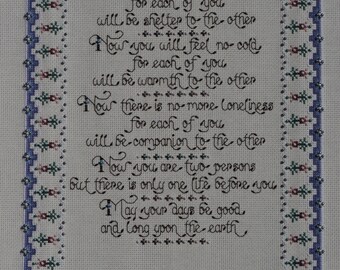 for each of you
will be shelter to the other
Now you will feel no cold
for each of you
will be warmth to the other
Now there is no more loneliness
for each of you
will be companion to the other
Now you are two persons
but there is only one life before you
May your days be good
and long upon the earth